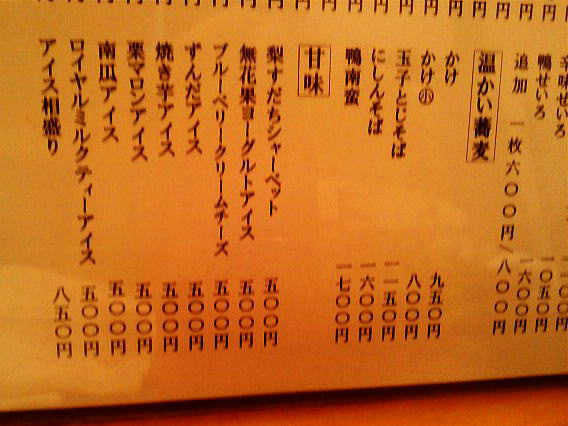 辛味せいろ
鴨せいろ 一〇五〇円
追加 一枚六〇〇円/八〇〇円
温かい蕎麦
かけ 九五〇円
かけ小 八〇〇円
玉子とじそば 一一五〇円
にしんそば 一六〇〇円
鴨南蛮 一七〇〇円
甘味
梨すだちシャーベット 五〇〇円
無花果ヨーグルトアイス 五〇〇円
ブルーベリークリームチーズ 五〇〇円
ずんだアイス 五〇〇円
焼き芋アイス 五〇〇円
栗マロンアイス 五〇〇円
南瓜アイス 五〇〇円
ロイヤルミルクティーアイス 五〇〇円
アイス相盛り 八五〇円